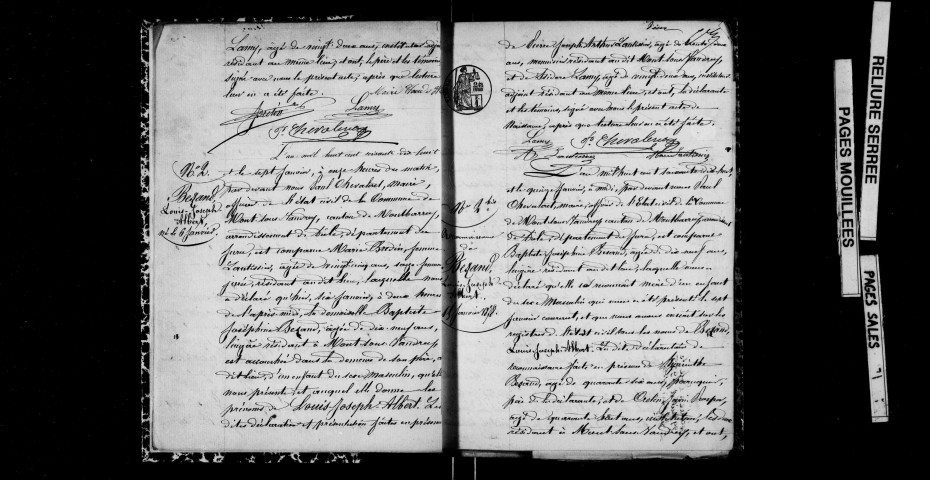 Lamy, âgé de vingt deux ans, instituteur adjoint
résidant au même lieu, et ont, le père et les témoins
signé avec nous le présent acte, après que lecture
leur en a été faite.
Lamy
P. Chevalret
L'an mil huit cent soixante dix huit
et le sept Janvier, à onze heures du matin,
par devant nous Paul Chevalret, Maire,
officier de l'état civil de la Commune de
Mont sous Vaudrey, canton de Montbarrey,
arrondissement de Dole, département du
Jura, est comparue Marie Bordin, femme
Lautissier, âgée de vingt cinq ans, sage-femme
résidant au dit lieu, laquelle nous
a déclaré qu'hier, six Janvier, à deux heures
de l'après-midi, la demoiselle Baptiste
Joséphine Bezand, âgée de dix neuf ans,
lingère résidant à Mont sous Vaudrey
est accouchée dans la demeure de son père, au
dit lieu, d'un enfant du sexe masculin, qu'elle
nous présente et auquel elle donne les
prénoms de Louis-Joseph-Albert. Les
dites déclaration et présentation faites en présence
N° 2.
Bezand
Louis-Joseph
Albert,
né le 6 Janvier
de Pierre Joseph Arthur Lautissier, âgé de trente deux
ans, menuisier résidant au dit Mont sous Vaudrey,
et de Isidore Lamy, âgé de vingt deux ans, instituteur
adjoint résidant au même lieu, et ont, la déclarante
et les témoins, signé avec nous le présent acte de
Naissance, après que lecture leur en a été faite.
Lamy
P. Chevalret
L'an mil huit cent soixante dix huit,
et le quinze Janvier, à midi, par devant nous Paul
Chevalret, maire, officier de l'Etat civil de la Commune
de Mont sous Vaudrey canton de Montbarrey, arrondissement
de Dole, département du Jura, est comparue
Baptiste Joséphine Bezand, âgée de dix neuf ans,
lingère résidant au dit lieu, laquelle nous a
déclaré qu'elle se reconnait mère d'un enfant
du sexe Masculin qui nous a été présenté le sept
Janvier courant, et que nous avons inscrit sur les
registres de l'état civil sous les noms de Bezand,
Louis-Joseph-Albert. La dite déclaration de
reconnaissance faite en présence de Hyacinthe
Bezand, âgé de quarante six ans,
père de la déclarante, et de
âgé de quarante sept ans, instituteur, les deux
résidant à Mont sous Vaudrey, et ont,
N° 2 bis
Reconnaissance
de
Bezand,
Louis Joseph
Albert.
15 Janvier 1878.
RELIURE SERREE
PAGES MOUILLEES
PAGES SALES